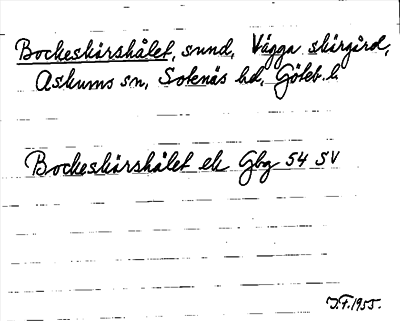 Bockeskärshålet, sund, Vägga skärgård,
Askums sn, Sotenäs hd, Göteb. l.
Bockeskärshålet ek Gbg 54 SV
J.F. 1955.